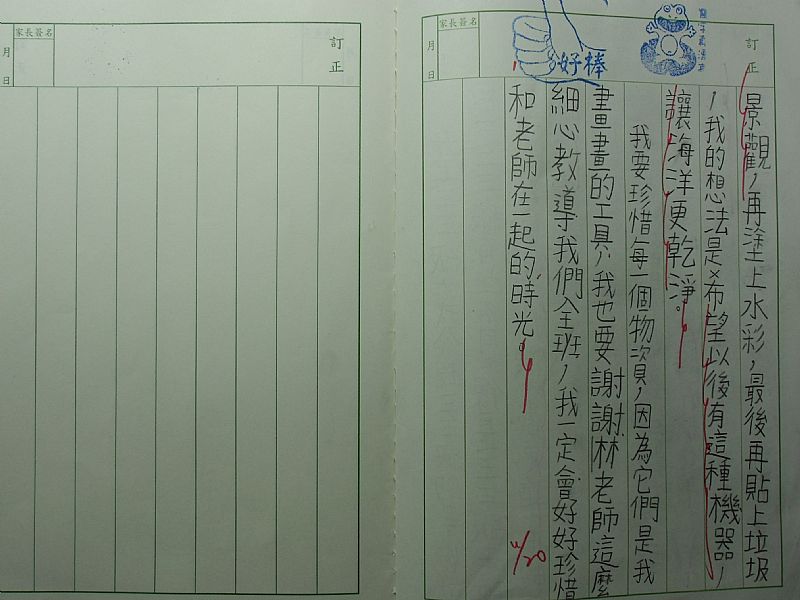 訂正
景觀，再塗上水彩，最後再貼上垃圾
，我的想法是希望以後有這種機器，
讓海洋更乾淨。
我要珍惜每一個物資，因為它們是我
畫畫的工具，我也要謝謝林老師這麼
細心教導我們全班，我一定會好好珍惜
和老師在一起的時光。
好棒
家長簽名
月
日
訂正
家長簽名
月
日